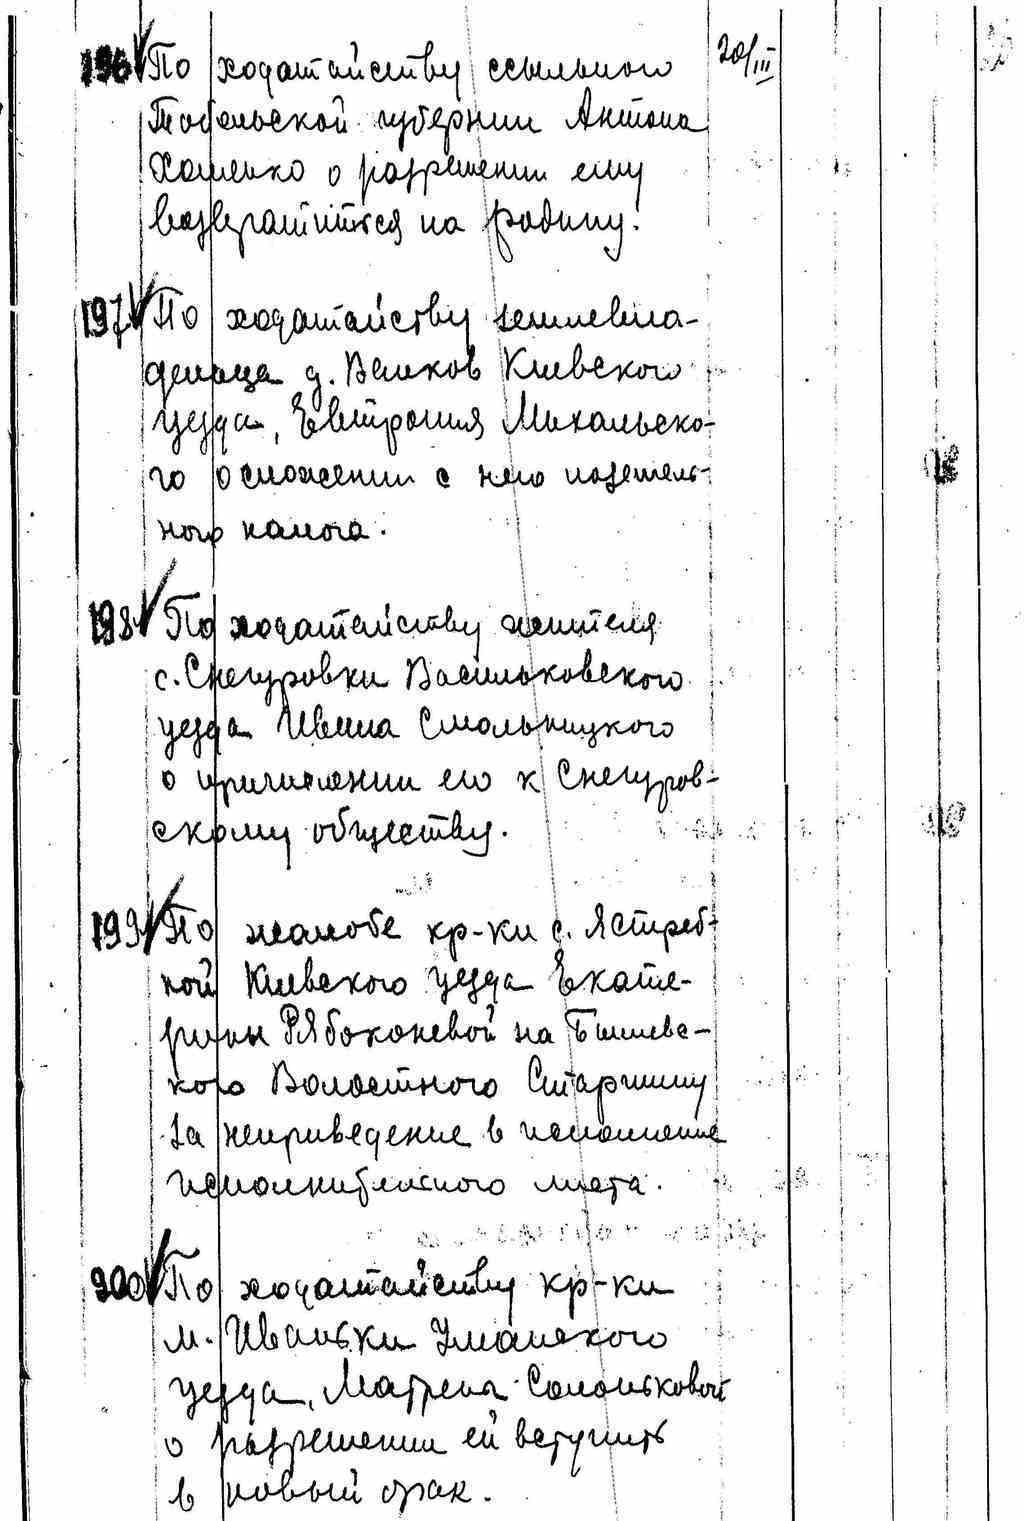 196 По ходатайству ссыльного 20/III
Тобольской губернии Антона
о разрешении ему
возвратиться на родину.
197 По ходатайству землевла-
дельца д. Велков Киевского
уезда, Евтропия Михальско-
го о сложении с него поземель-
ного налога.
198 По ходатайству жителя
с. Снегуровки Васильковского
уезда Ивана Смольницкого
о причислении его к Снегуров-
скому обществу.
199 По жалобе кр-ки с. Ястреб-
ной Киевского уезда Екате-
рины Рябоконевой на Бышевс-
кого Волостного Старшину
за неприведение в исполнение
исполнительного листа.
200 По ходатайству кр-ки
м. Иваньки Уманского
уезда, Матрены Солоньковой
о разрешении ей вступить
в новый брак.